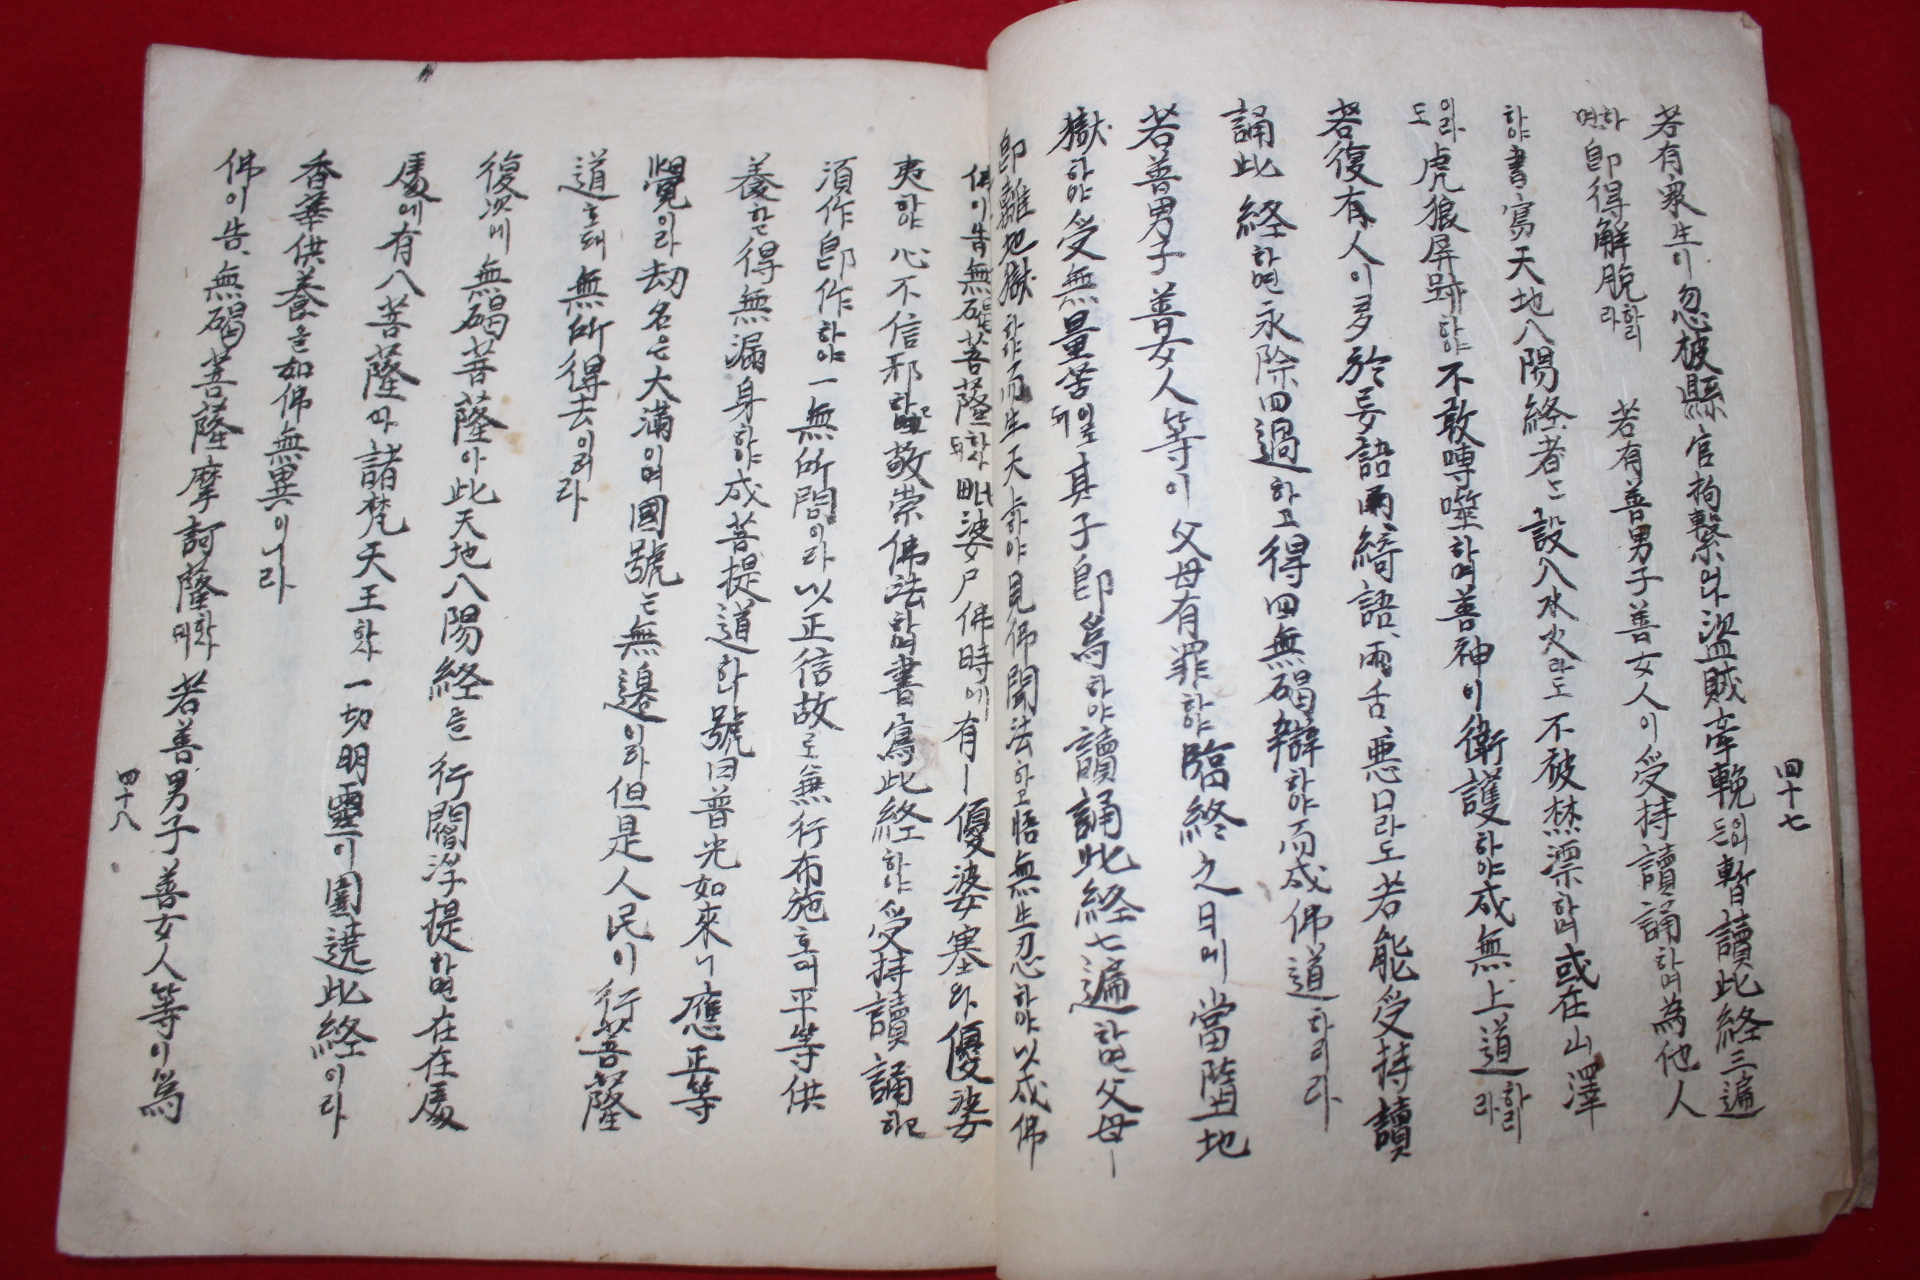 若有衆生이忽被縣官拘繫와盜賊牽輓든暫讀此経三遍
하면卽得解脫하리라 若有善男子善女人이受持讀誦하며為他人
하야書寫天地八陽経者는設入水火라도不被焚漂하며或在山澤
이라도虎狼屛跡하야不敢嚩噬하며善神이衛護하야成無上道하리라
若復有人이多於妄語而綺語、兩舌、惡口라도若能受持讀
誦此経하면永除四過하고得四無碍辯하야而成佛道하리라
若善男子善女人等이父母有罪하야臨終之日에當墮地
獄하야受無量苦이로되其子卽爲하야讀誦此経七遍하면父母ㅣ
卽離地獄하야而生天上하야見佛聞法하고悟無生忍하야以成佛
佛이告無碍菩薩하사되毗婆尸佛時에有ㅣ優婆塞와優婆
夷하야心不信邪하고敬崇佛法하며書寫此経하야受持讀誦하고
須作卽作하야一無所問이라以正信故로無行布施호며平等供
養하는得無漏身하야成菩提道하니號曰普光如來니應正等
覺이라劫名은大滿이며國號는無邊이라但是人民이行菩薩
道호되無所得去이러라
復次에無碍菩薩아此天地八陽経을行閻浮提하면在在處
處에有八菩薩과諸梵天王하과一切明靈이圍遶此経이라
香華供養을如佛無異이니라
佛이告、無碍菩薩摩訶薩하사되若善男子善女人等이為
四十七
四十八